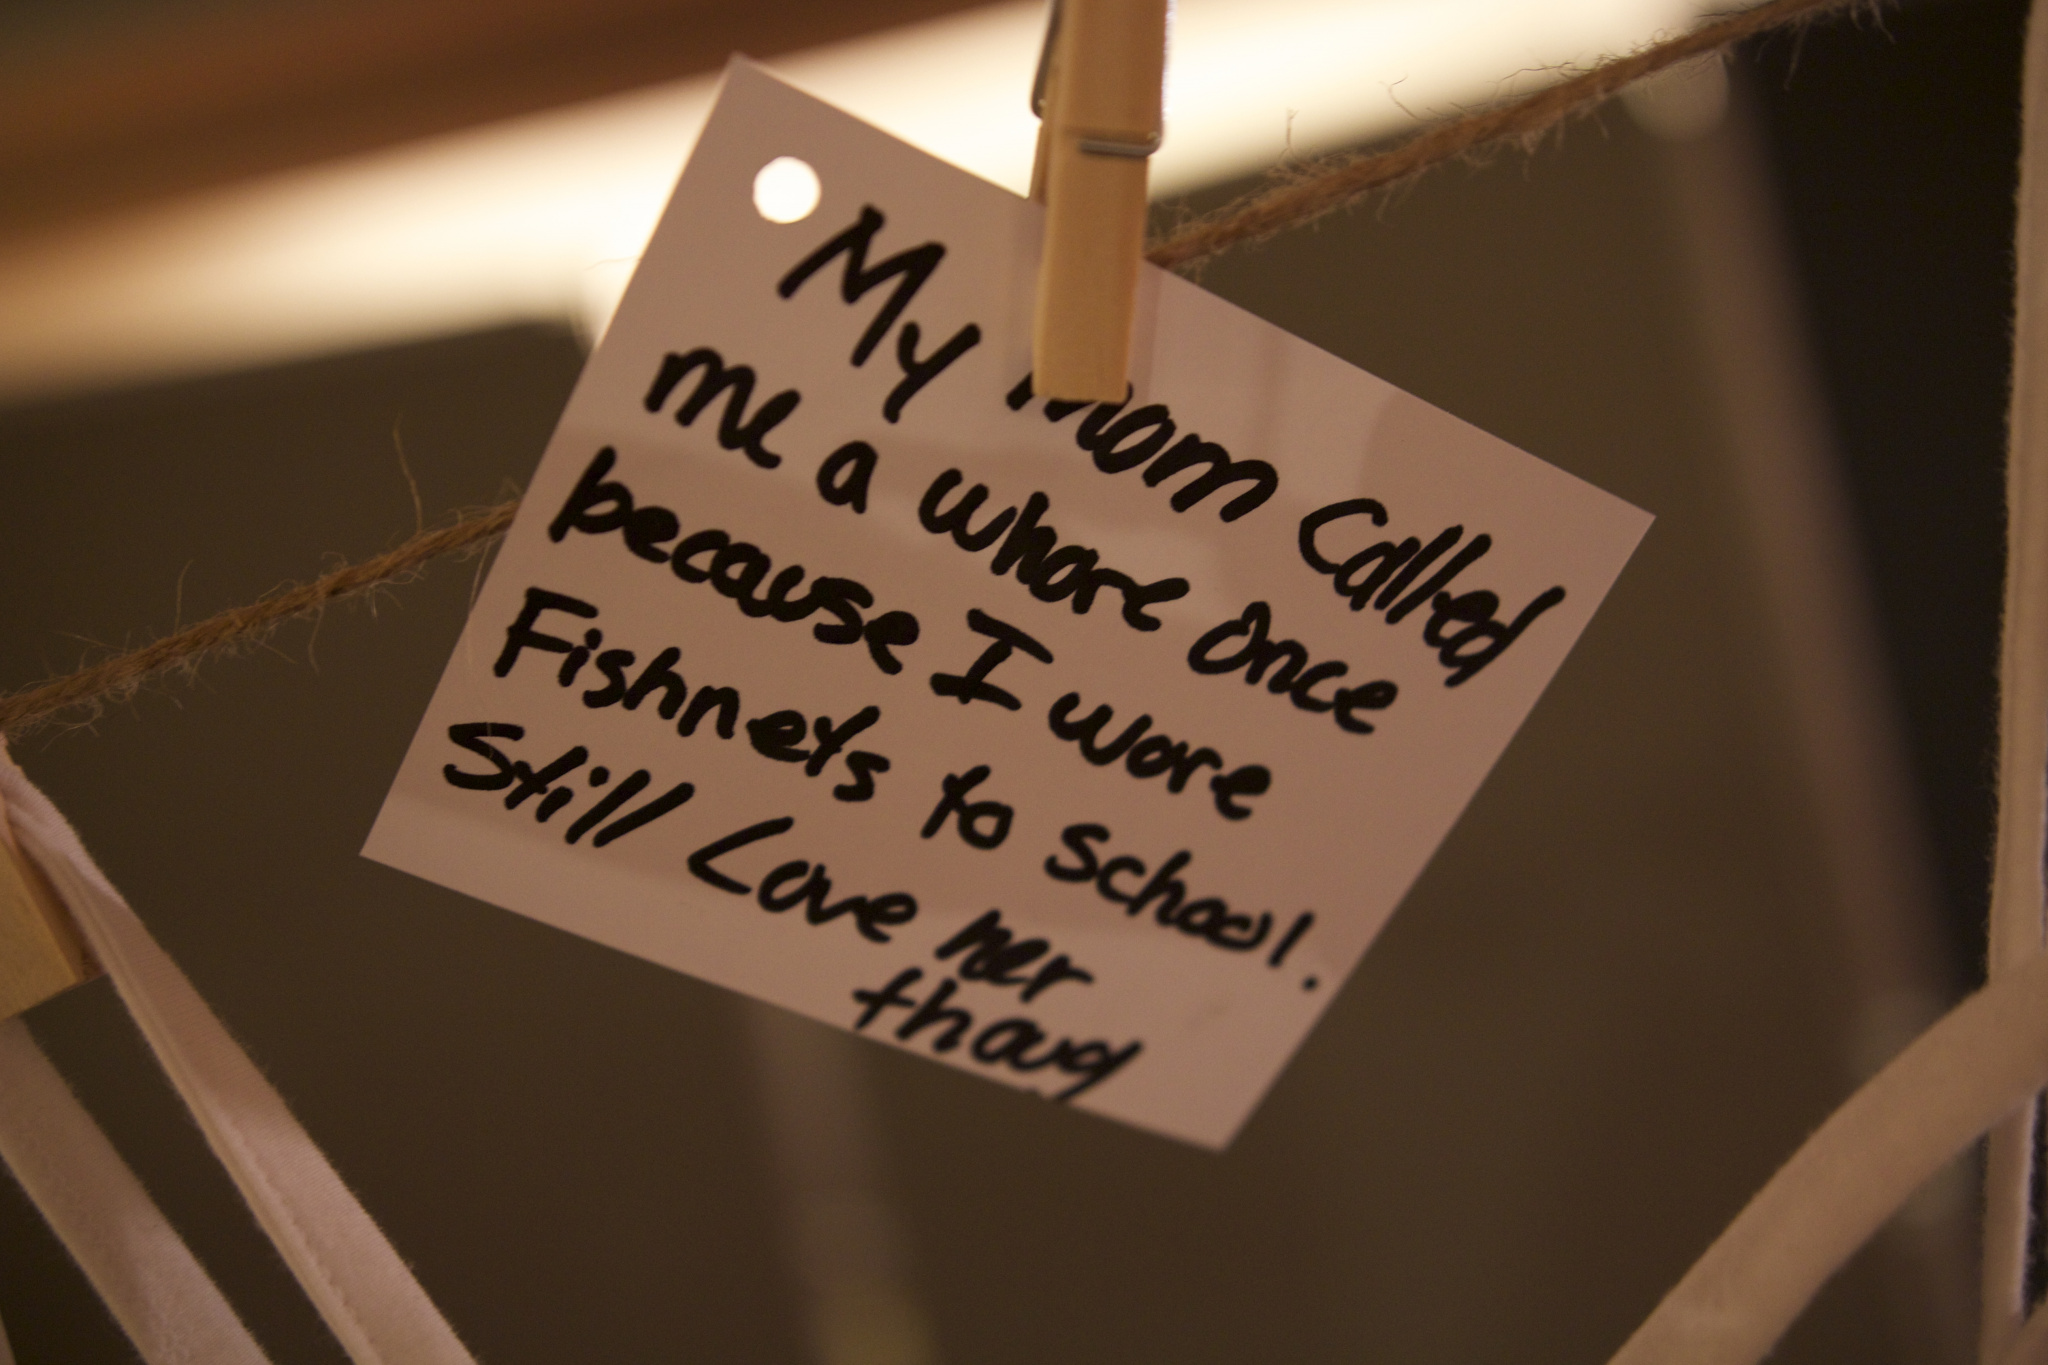 My mom called
me a whore once
because I wore
Fishnets to school.
Still Love her
thoug